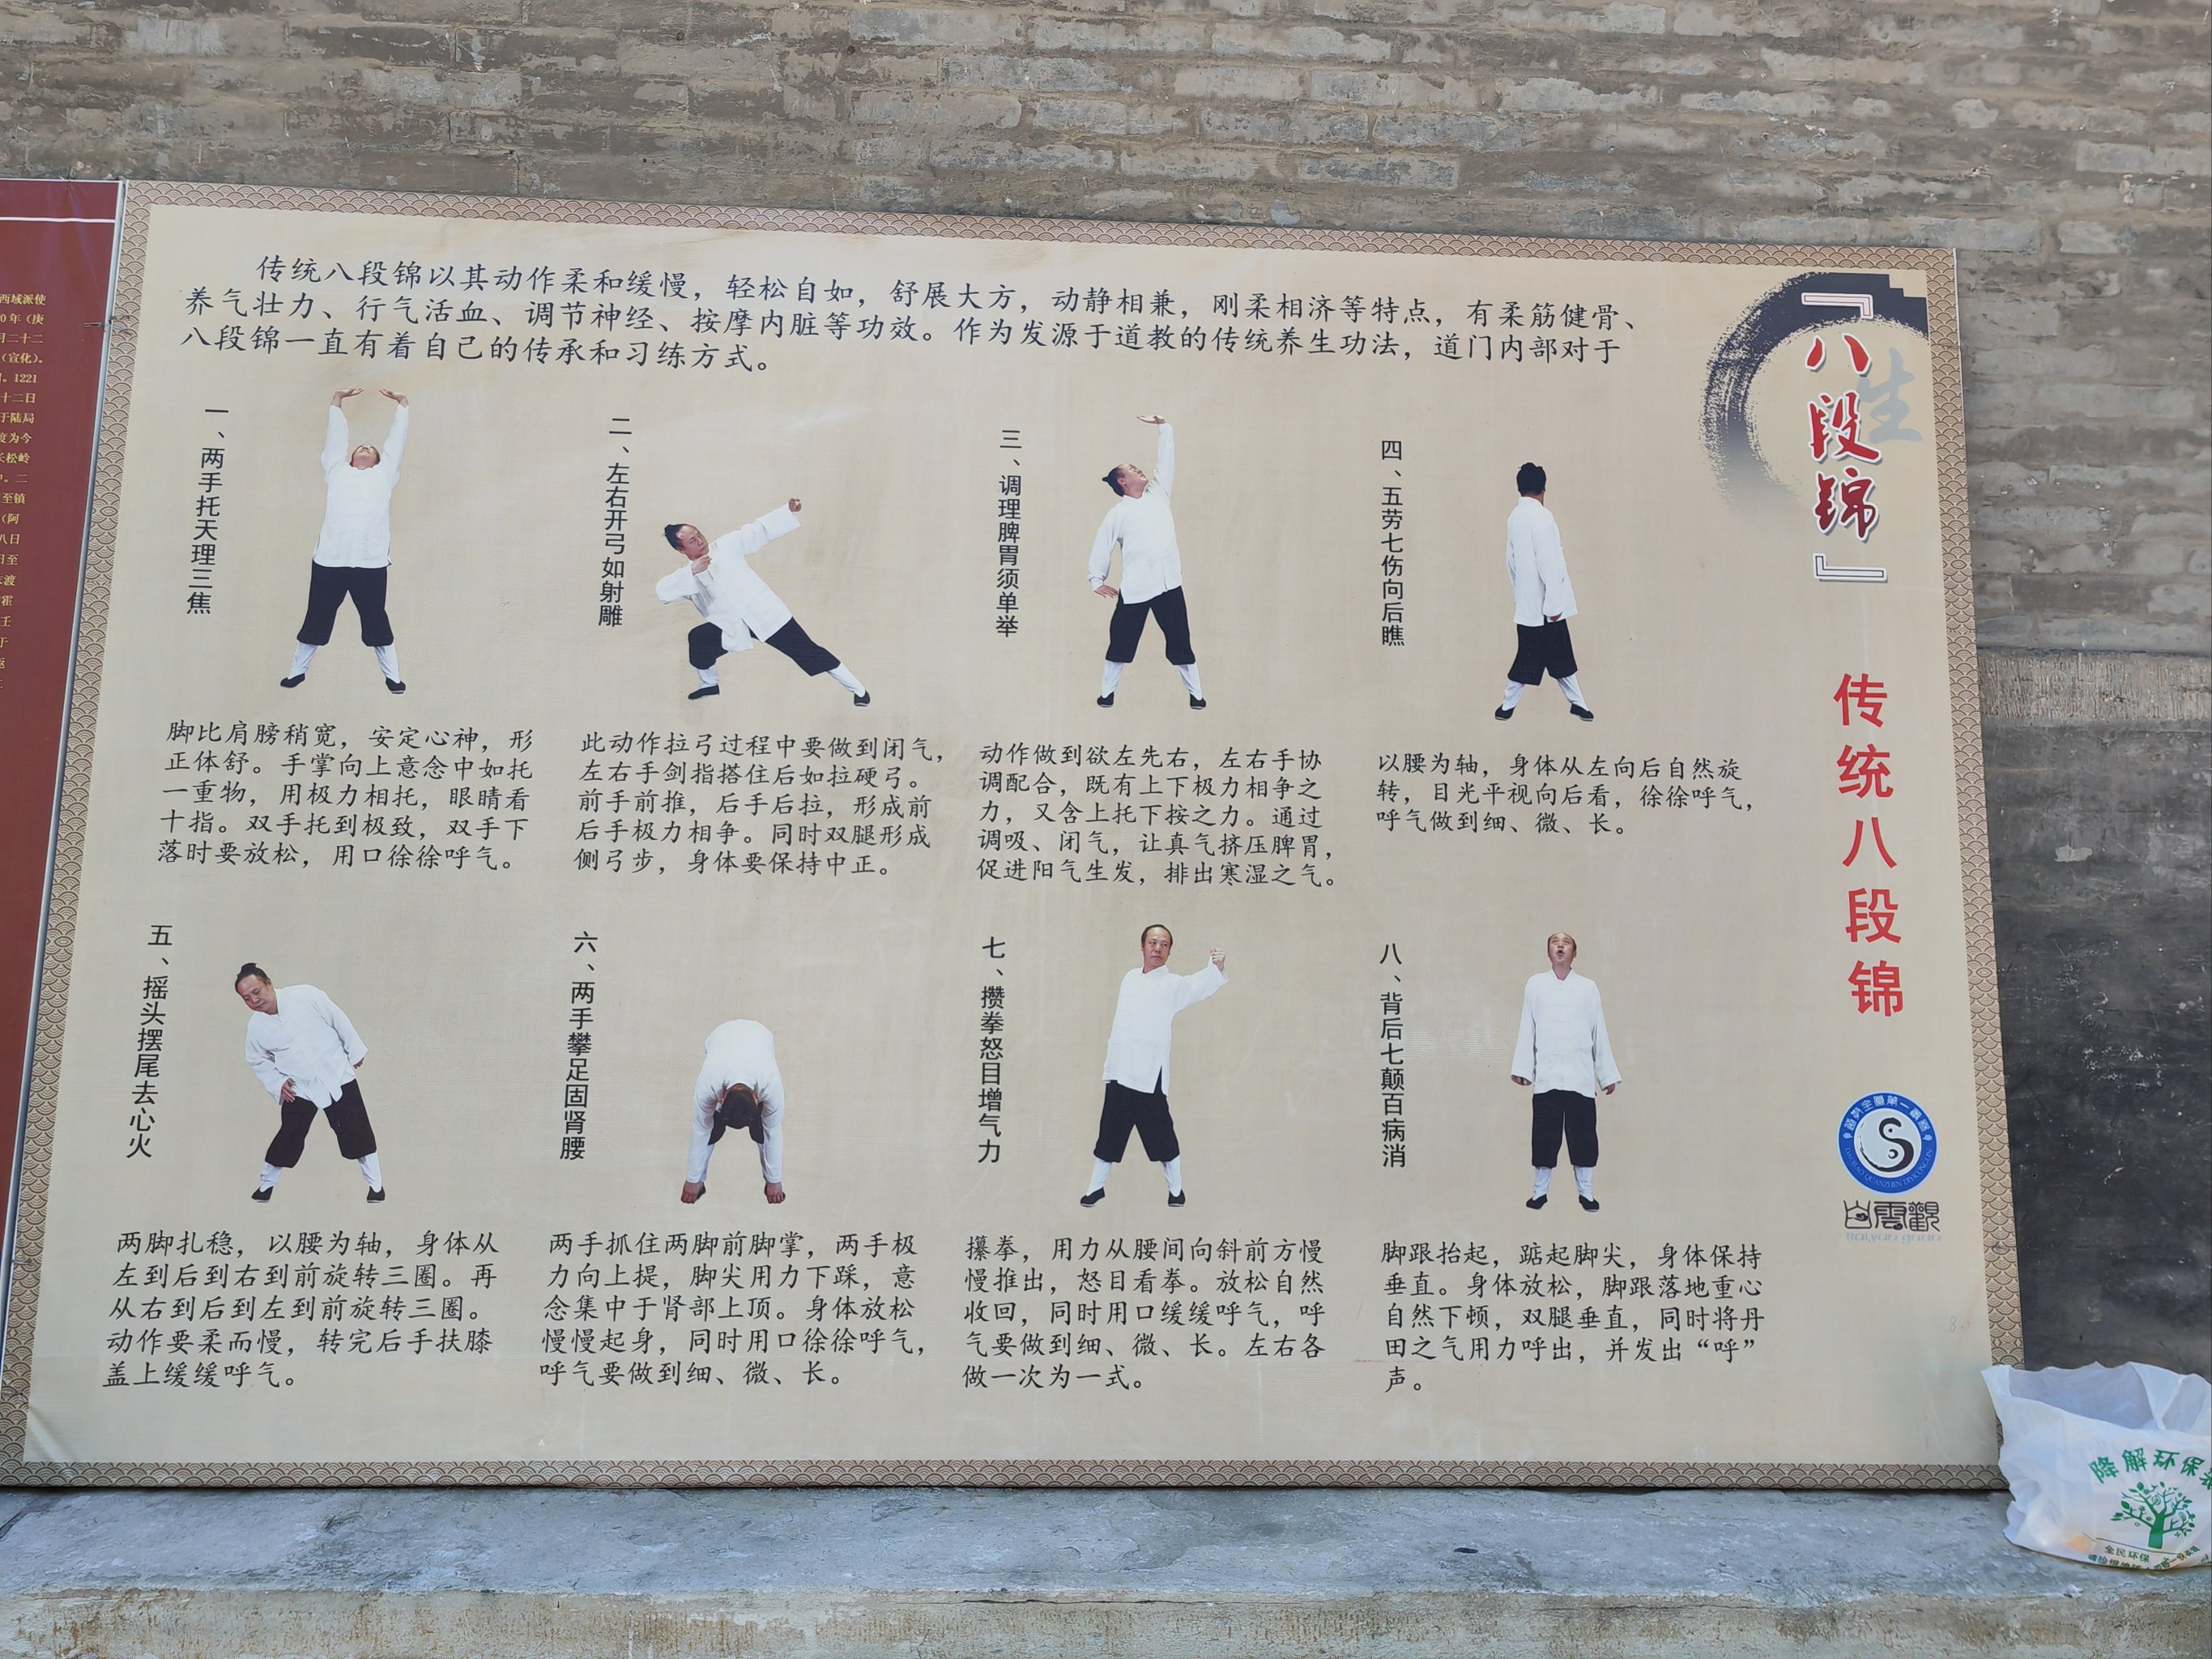 传统八段锦以其动作柔和缓慢，轻松自如，舒展大方，动静相兼，刚柔相济等特点，有柔筋健骨、
养气壮力、行气活血、调节神经、按摩内脏等功效。作为发源于道教的传统养生功法，道门内部对于
八段锦一直有着自己的传承和习练方式。
『八段锦』
生
传统八段锦
一、两手托天理三焦
脚比肩膀稍宽，安定心神，形
正体舒。手掌向上意念中如托
一重物，用极力相托，眼睛看
十指。双手托到极致，双手下
落时要放松，用口徐徐呼气。
二、左右开弓如射雕
此动作拉弓过程中要做到闭气，
左右手剑指搭住后如拉硬弓。
前手前推，后手后拉，形成前
后手极力相争。同时双腿形成
侧弓步，身体要保持中正。
三、调理脾胃须单举
动作做到欲左先右，左右手协
调配合，既有上下极力相争之
力，又含上托下按之力。通过
调吸、闭气，让真气挤压脾胃，
促进阳气生发，排出寒湿之气。
四、五劳七伤向后瞧
以腰为轴，身体从左向后自然旋
转，目光平视向后看，徐徐呼气，
呼气做到细、微、长。
五、摇头摆尾去心火
两脚扎稳，以腰为轴，身体从
左到后到右到前旋转三圈。再
从右到后到左到前旋转三圈。
动作要柔而慢，转完后手扶膝
盖上缓缓呼气。
六、两手攀足固肾腰
两手抓住两脚前脚掌，两手极
力向上提，脚尖用力下踩，意
念集中于肾部上顶。身体放松
慢慢起身，同时用口徐徐呼气，
呼气要做到细、微、长。
七、攒拳怒目增气力
攥拳，用力从腰间向斜前方慢
慢推出，怒目看拳。放松自然
收回，同时用口缓缓呼气，呼
气要做到细、微、长。左右各
做一次为一式。
八、背后七颠百病消
脚跟抬起，踮起脚尖，身体保持
垂直。身体放松，脚跟落地重心
自然下顿，双腿垂直，同时将丹
田之气用力呼出，并发出“呼”
声。
白雲觀
西域派使
0年（庚
月二十二
（宣化）。
1221
十二日
于陆局
度为今
长松岭
二
至镇
（阿
八日
日至
渡
霍
壬
于
降解环保
全民环保